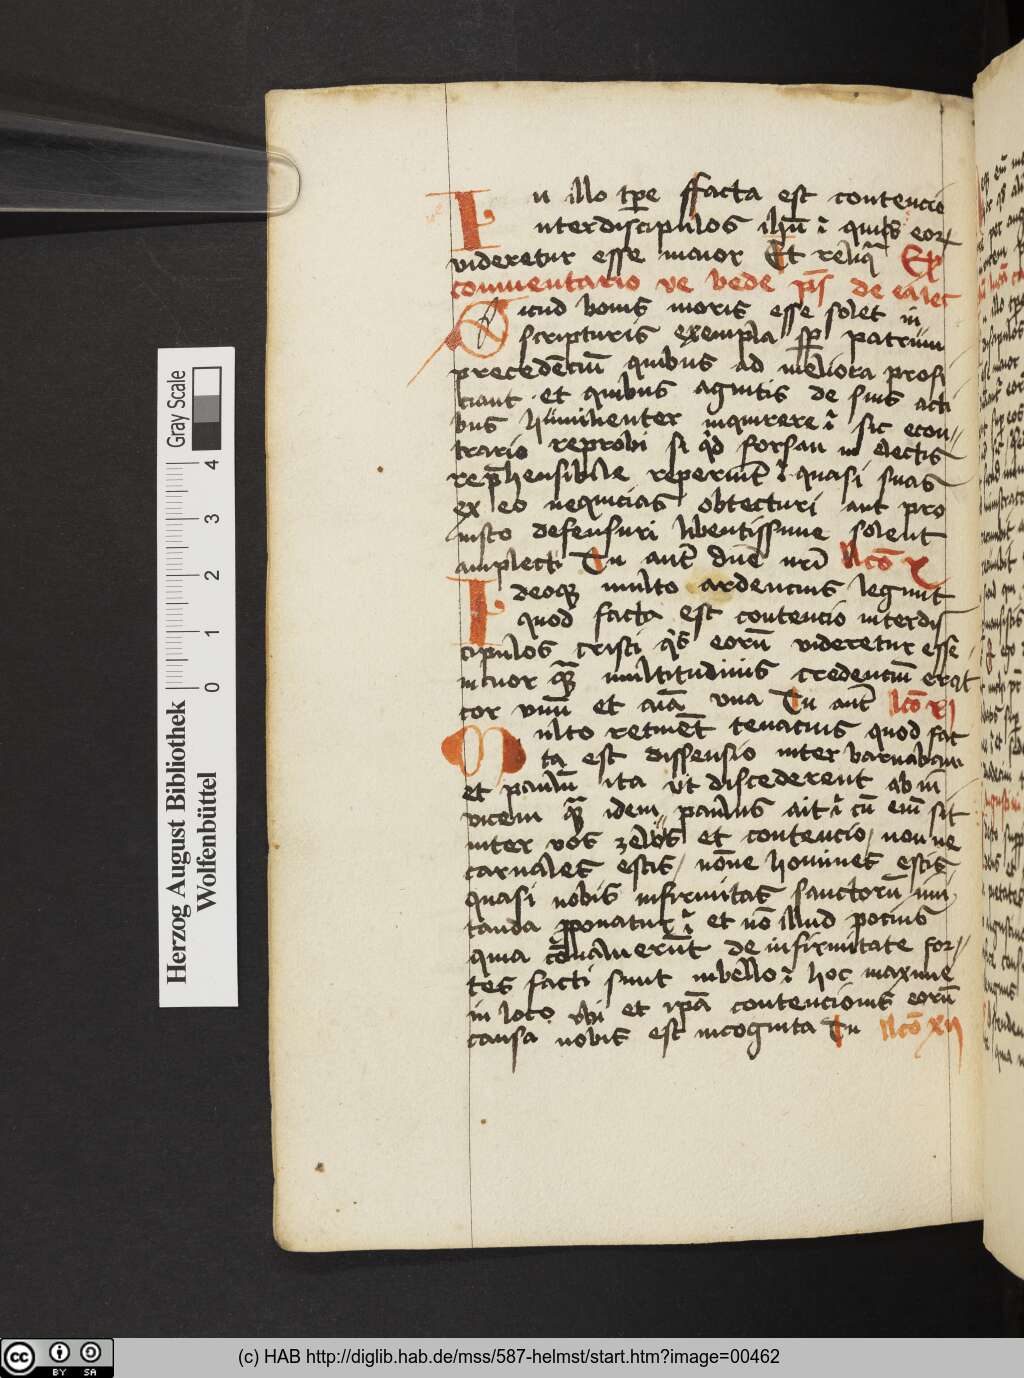 In illo tpe ffacta est contencio
interdiscipulos ihū ⁊ quis eor
videretur esse maior Et reliq̄ Ex
commentario ve bede p̄s de ea lec
Sicud bonis moris esse solet in
scripturis exempla sp̄ patrum
precedēciū quibus ad meliora profi
ciant et quibus agnitis de suis acti
bus humilienter inquirere ⁊ sic econ
trario reprobi si qd forsan in electis
rep̄hensibile reperiūt ⁊ quasi suas
ex eo nequicias obtecturi aut pro
iusto defensuri libentissime solent
amplecti Tu aut dn̄e nr̄i llcō x
Ideoqꝫ multo ardencius legunt
quod facta est contencio interdis
cipulos cristi q's eorū videretur esse
maior qꝫ multitudinis credenciū erat
cor unū et aīa una Tu aut llcō xi
Multo retinēt tenacius quod fac
ta est dissensio inter barnabam
et paulū ita ut discederent ab in
vicem qꝫ idem paulus ait ⁊ cū eni sit
inter vos zelus et contencio non ne
carnales estis nōne homines estis
quasi nobis infirmitas sanctorū imi
tanda p̄ponatur ⁊ et nō illud pocius
quia cōualuerūt de infirmitate for
tes facti sunt inbello ⁊ hoc maxime
in loco ubi et ip̄a contencionis eorū
causa nobis est incognita Tu llcō xii
Gray Scale
0 1 2 3 4
Herzog August Bibliothek
Wolfenbüttel
cc BY SA
(c) HAB http://diglib.hab.de/mss/587-helmst/start.htm?image=00462